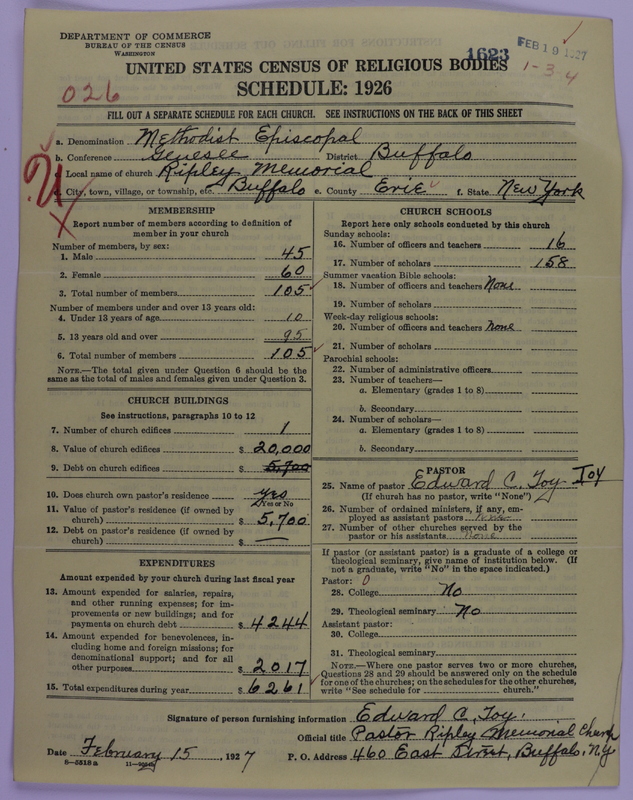 DEPARTMENT OF COMMERCE
BUREAU OF THE CENSUS
WASHINGTON
1623
FEB 19 1927
1-3-4
026
UNITED STATES CENSUS OF RELIGIOUS BODIES
SCHEDULE: 1926
FILL OUT A SEPARATE SCHEDULE FOR EACH CHURCH. SEE INSTRUCTIONS ON THE BACK OF THIS SHEET
a. Denomination Methodist Episcopal
b. Conference Genesee District Buffalo
Local name of church Ripley Memorial
City, town, village, or township, etc. Buffalo e. County Erie f. State New York
MEMBERSHIP
Report number of members according to definition of member in your church
Number of members, by sex:
1. Male 45
2. Female 60
3. Total number of members 105
Number of members under and over 13 years old:
4. Under 13 years of age 10
5. 13 years old and over 95
6. Total number of members 105
NOTE.—The total given under Question 6 should be the same as the total of males and females given under Question 3.
CHURCH BUILDINGS
See instructions, paragraphs 10 to 12
7. Number of church edifices 1
8. Value of church edifices $ 20,000
9. Debt on church edifices $ 5,700
10. Does church own pastor's residence yes
Yes or No
11. Value of pastor's residence (if owned by church) $ 5,700
12. Debt on pastor's residence (if owned by church) $ —
EXPENDITURES
Amount expended by your church during last fiscal year
13. Amount expended for salaries, repairs, and other running expenses; for improvements or new buildings; and for payments on church debt $ 4244
14. Amount expended for benevolences, including home and foreign missions; for denominational support; and for all other purposes $ 2017
15. Total expenditures during year $ 6261
CHURCH SCHOOLS
Report here only schools conducted by this church
Sunday schools:
16. Number of officers and teachers 16
17. Number of scholars 158
Summer vacation Bible schools:
18. Number of officers and teachers None
19. Number of scholars
Week-day religious schools:
20. Number of officers and teachers None
21. Number of scholars
Parochial schools:
22. Number of administrative officers
23. Number of teachers—
a. Elementary (grades 1 to 8)
b. Secondary
24. Number of scholars—
a. Elementary (grades 1 to 8)
b. Secondary
PASTOR
25. Name of pastor Edward C. Toy Ioy
(If church has no pastor, write "None")
26. Number of ordained ministers, if any, employed as assistant pastors None
27. Number of other churches served by the pastor or his assistants None
If pastor (or assistant pastor) is a graduate of a college or theological seminary, give name of institution below. (If not a graduate, write "No" in the space indicated.)
Pastor: 0
28. College No
29. Theological seminary No
Assistant pastor:
30. College
31. Theological seminary
NOTE.—Where one pastor serves two or more churches, Questions 28 and 29 should be answered only on the schedule for one of the churches; on the schedules for the other churches, write "See schedule for church."
Signature of person furnishing information Edward C. Toy.
Official title Pastor Ripley Memorial Church
Date February 15, 1927 P. O. Address 460 East Street, Buffalo, N.Y
8—5518 a